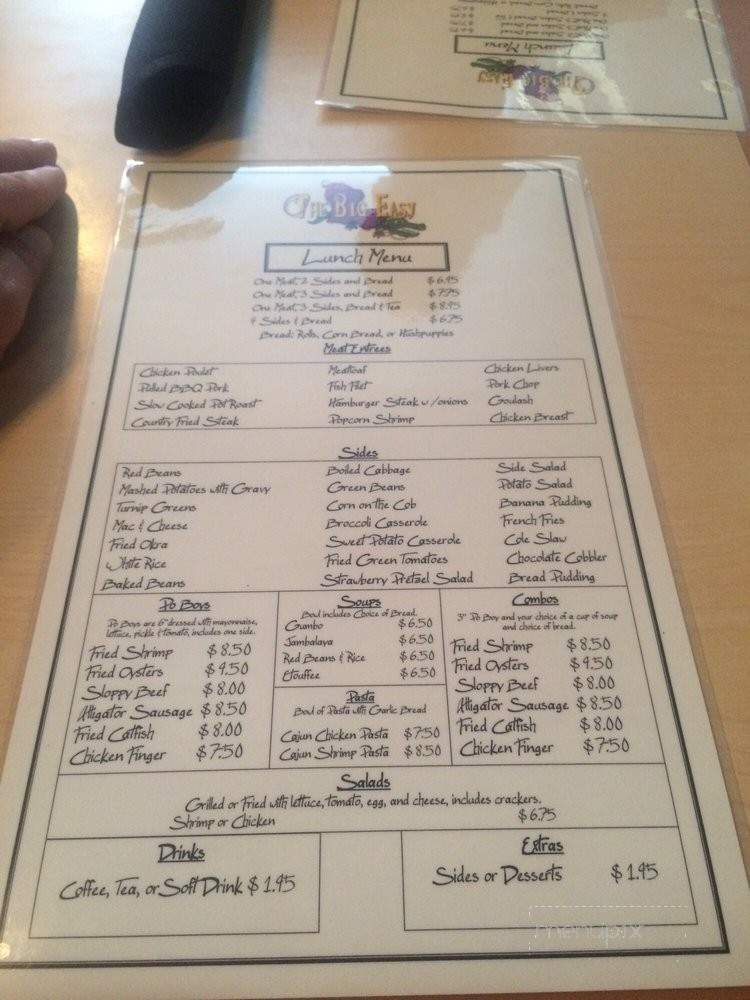 Lunch Menu
The Big Easy
The Big Easy
Lunch Menu
One Meat, 2 Sides and Bread $6.95
One Meat, 3 Sides and Bread $7.75
One Meat, 3 Sides, Bread & Tea $8.95
4 Sides & Bread $6.75
Bread: Rolls, Corn Bread, or Hushpuppies
Meat Entrees
Chicken Poulet Meatloaf Chicken Livers
Pulled BBQ Pork Fish Filet Pork Chop
Slow Cooked Pot Roast Hamburger Steak w/onions Goulash
Country Fried Steak Popcorn Shrimp Chicken Breast
Sides
Red Beans Boiled Cabbage Side Salad
Mashed Potatoes with Gravy Green Beans Potato Salad
Turnip Greens Corn on the Cob Banana Pudding
Mac & Cheese Broccoli Casserole French Fries
Fried Okra Sweet Potato Casserole Cole Slaw
White Rice Fried Green Tomatoes Chocolate Cobbler
Baked Beans Strawberry Pretzel Salad Bread Pudding
Po Boys
Po Boys are 6" dressed with mayonnaise,
lettuce, pickle & tomato, includes one side.
Fried Shrimp $8.50
Fried Oysters $9.50
Sloppy Beef $8.00
Alligator Sausage $8.50
Fried Catfish $8.00
Chicken Finger $7.50
Soups
Bowl includes Choice of Bread.
Gumbo $6.50
Jambalaya $6.50
Red Beans & Rice $6.50
Etouffee $6.50
Pasta
Bowl of Pasta with Garlic Bread
Cajun Chicken Pasta $7.50
Cajun Shrimp Pasta $8.50
Combos
3" Po Boy and your choice of a cup of soup
and choice of bread.
Fried Shrimp $8.50
Fried Oysters $9.50
Sloppy Beef $8.00
Alligator Sausage $8.50
Fried Catfish $8.00
Chicken Finger $7.50
Salads
Grilled or Fried with lettuce, tomato, egg, and cheese, includes crackers.
Shrimp or Chicken $6.75
Drinks
Coffee, Tea, or Soft Drink $1.95
Extras
Sides or Desserts $1.95
menupix